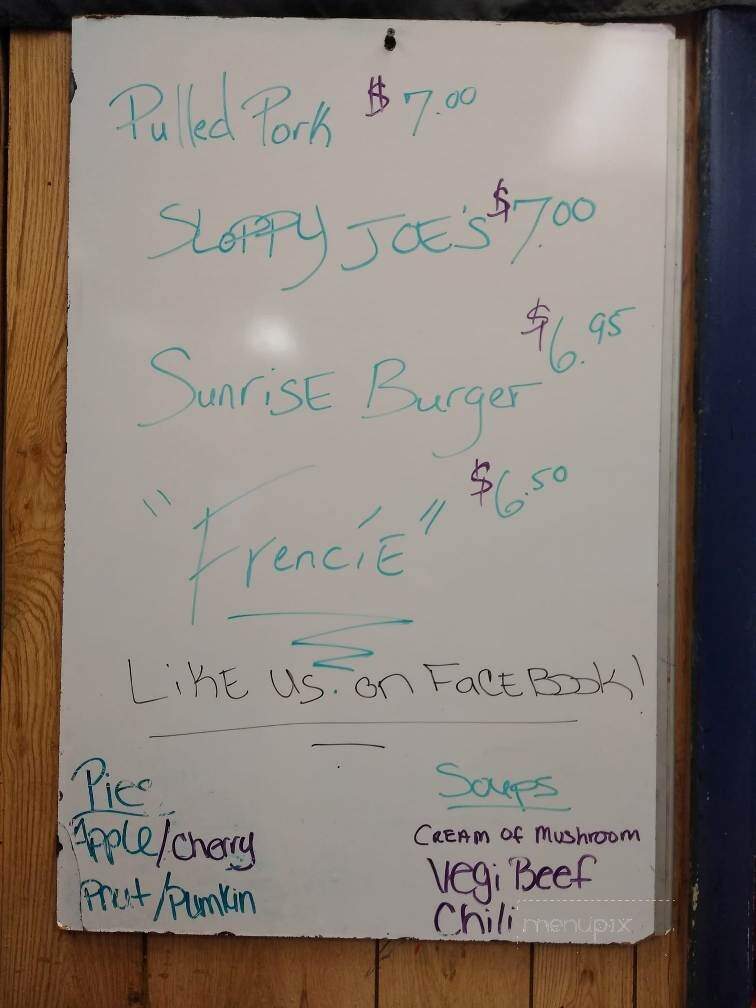 Pulled Pork $7.00
SLOPPY JOE'S $7.00
SunrisE Burger $6.95
"FrenciE" $6.50
LikE us. on FacEBook!
Pies
Apple/Cherry
Prut/Pumkin
Soups
CREAM of MushRooM
Vegi Beef
Chili
menupix